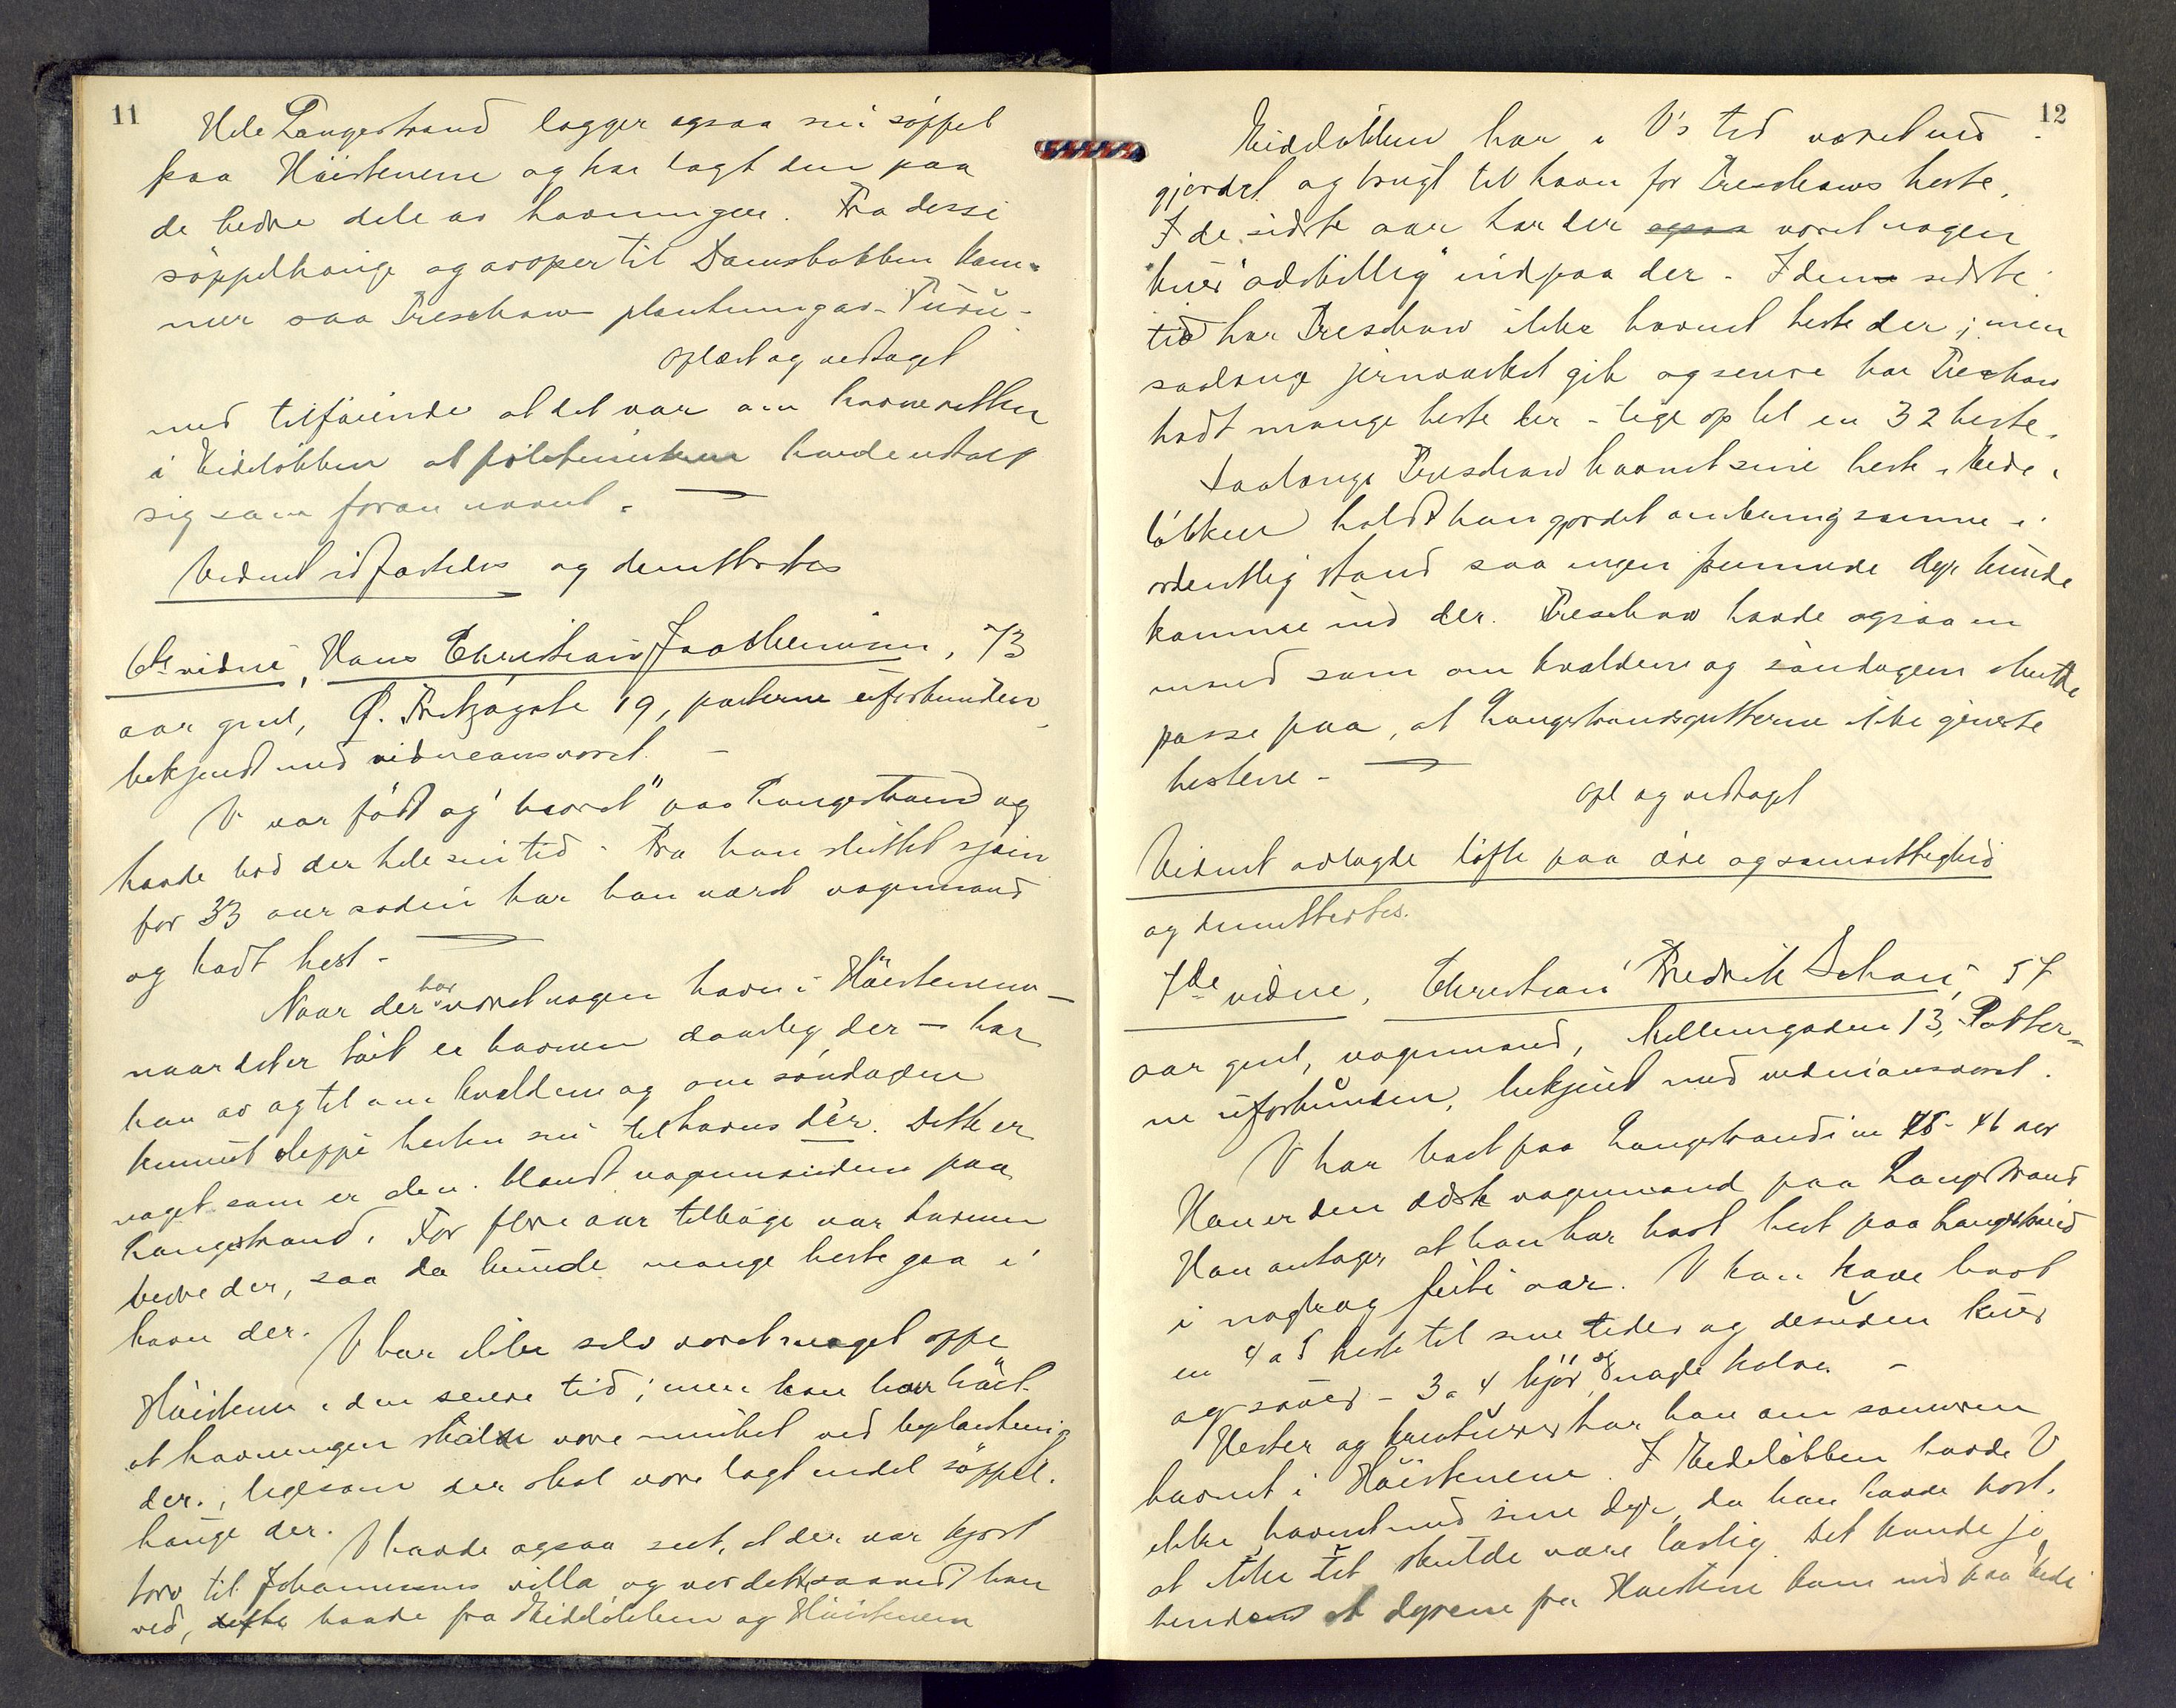 11
Hele Langestrand lægger ogsaa sin söppel
paa Höistenene og har lagt den paa
de bedre dele av havningen. Fra disse
söppelhauge og avoper til Damsbakken kom-
mer saa Treschows plantninger
oplæst og vedtaget
med tilföiende at det var om havneretten
i Kidelökken at havde uttalt
sig som foran nævnt.
Vidnet og demitteretes
6te vidne, Hans Christian Joachimsen, 73
aar gml, Ø. Fritzøgate 19, parterne uforbunden
bekjendt med vidneansvaret. -
V. var född og "baaret" paa Langestrand og
havde bod der hele sin tid. Fra han sluttet sjöen
for 33 aar siden har han været vognmand
og hadt hest. -
Naar der har været nogen havn i Höistenene -
naar det er tört er havnen daarlig der - har
han av og til om kvældene og om söndagene
kunnet sleppe hesten sin tilhavns dér. Dette er
noget som er alm. blandt vognmændene paa
Langestrand. For flere aar tilbage var havnen
bedre der, saa da kunde mange heste gaa i
havn der.
V har ikke selv været noget oppe
Höistenene i den senere tid; men han har hört
at havningen skal være minket ved beplantning
der, ligesom der skal være lagt endel söppel-
hauge der.
V havde ogsaa sett, at der var kjört
torv til Johannesens villa og
ved, baade fra Kidelökken og Höistenene
12
Kidelökken har i V's tid været ind-
gjerdet og brugt til havn for Treschows heste.
I de sidste aar har der ogsaa været nogen
kuer "adskillig" indpaa der. I den sidste
tid har Treschow ikke havnet heste der; men
saalænge jernverket gik og senere har Treschow
hadt mange heste der - lige op til en 32 heste.
Saalænge Treschow havnet sine heste i Kide-
lökken holdt han gjerdet omkring samme i
ordentlig stand saa ingen fremmede dyr kunde
komme ind der. Treschow havde ogsaa en
mand som om kvældene og söndagene skulde
passe paa, at Langestrandsgutterne ikke gjeneste
hestene -
opl og vedtaget
Vidnet avlagde löfte paa ære og samvittighed
og demitteretes.
7de vidne, Christian Fredrik Schau, 57
aar gml, vognmand, Kellumgaden 13, Parter-
ne uforbunden, bekjent med vidneansvaret.
V har boet paa Langestrand i en 45-46 aar
Han er den ældste vognmand paa Langestrand
Han antager at han har havt hest paa Langestrand
i nogleogførti aar. V kan have havt
en 4 a 5 heste til sine tider og desuden kuer
og sauer - 3 a 4 kjör og nogle kalve. -
Hester og kreaturer har han om sommeren
havnet i Höistenene. I Kidelökken havde V
ikke havnet med sine dyr, da han havde hört,
at ikke det skulde være lovlig. Det kunde jo
hende at dyrene fra Höistene kom ind paa Kide-